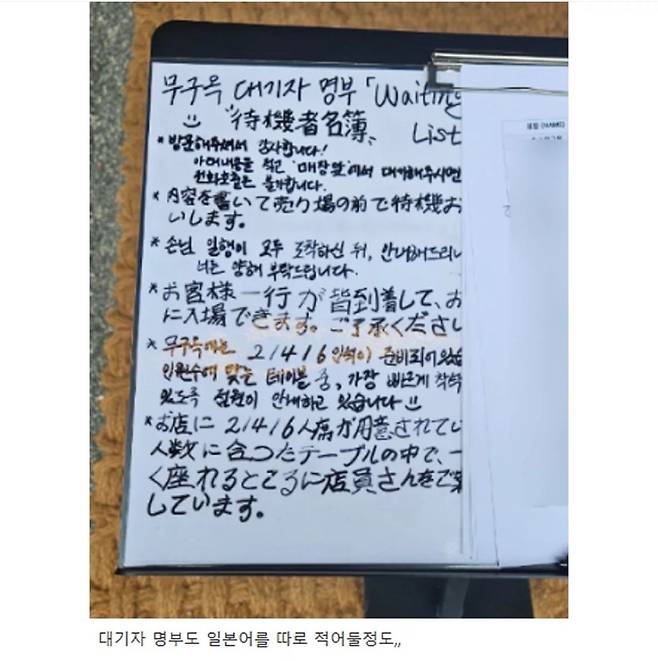 무구옥 대기자 명부 「Waiting
"待機者名簿" List
* 방문해주셔서 감사합니다!
아래내용을 적고 '매장앞'에서 대기해주시면
전화호출은 불가합니다.
* 内容を書いて売り場の前で待機お
いします。
* 손님 일행이 모두 도착하신 뒤, 안내해드리니
너른 양해 부탁드립니다.
* お客様一行が皆到着して、お
に入場できます。ご了承ください
* 무구옥에는 2/4/6 인석이 준비되어있
인원수에 맞는 테이블 중, 가장 빠르게 착석
있도록 점원이 안내하고 있습니다
* お店に 2/4/6人席が用意されてい
人数に合ったテーブルの中で、一
く座れるところに店員さんをご案
しています。
대기자 명부도 일본어를 따로 적어둘정도,,